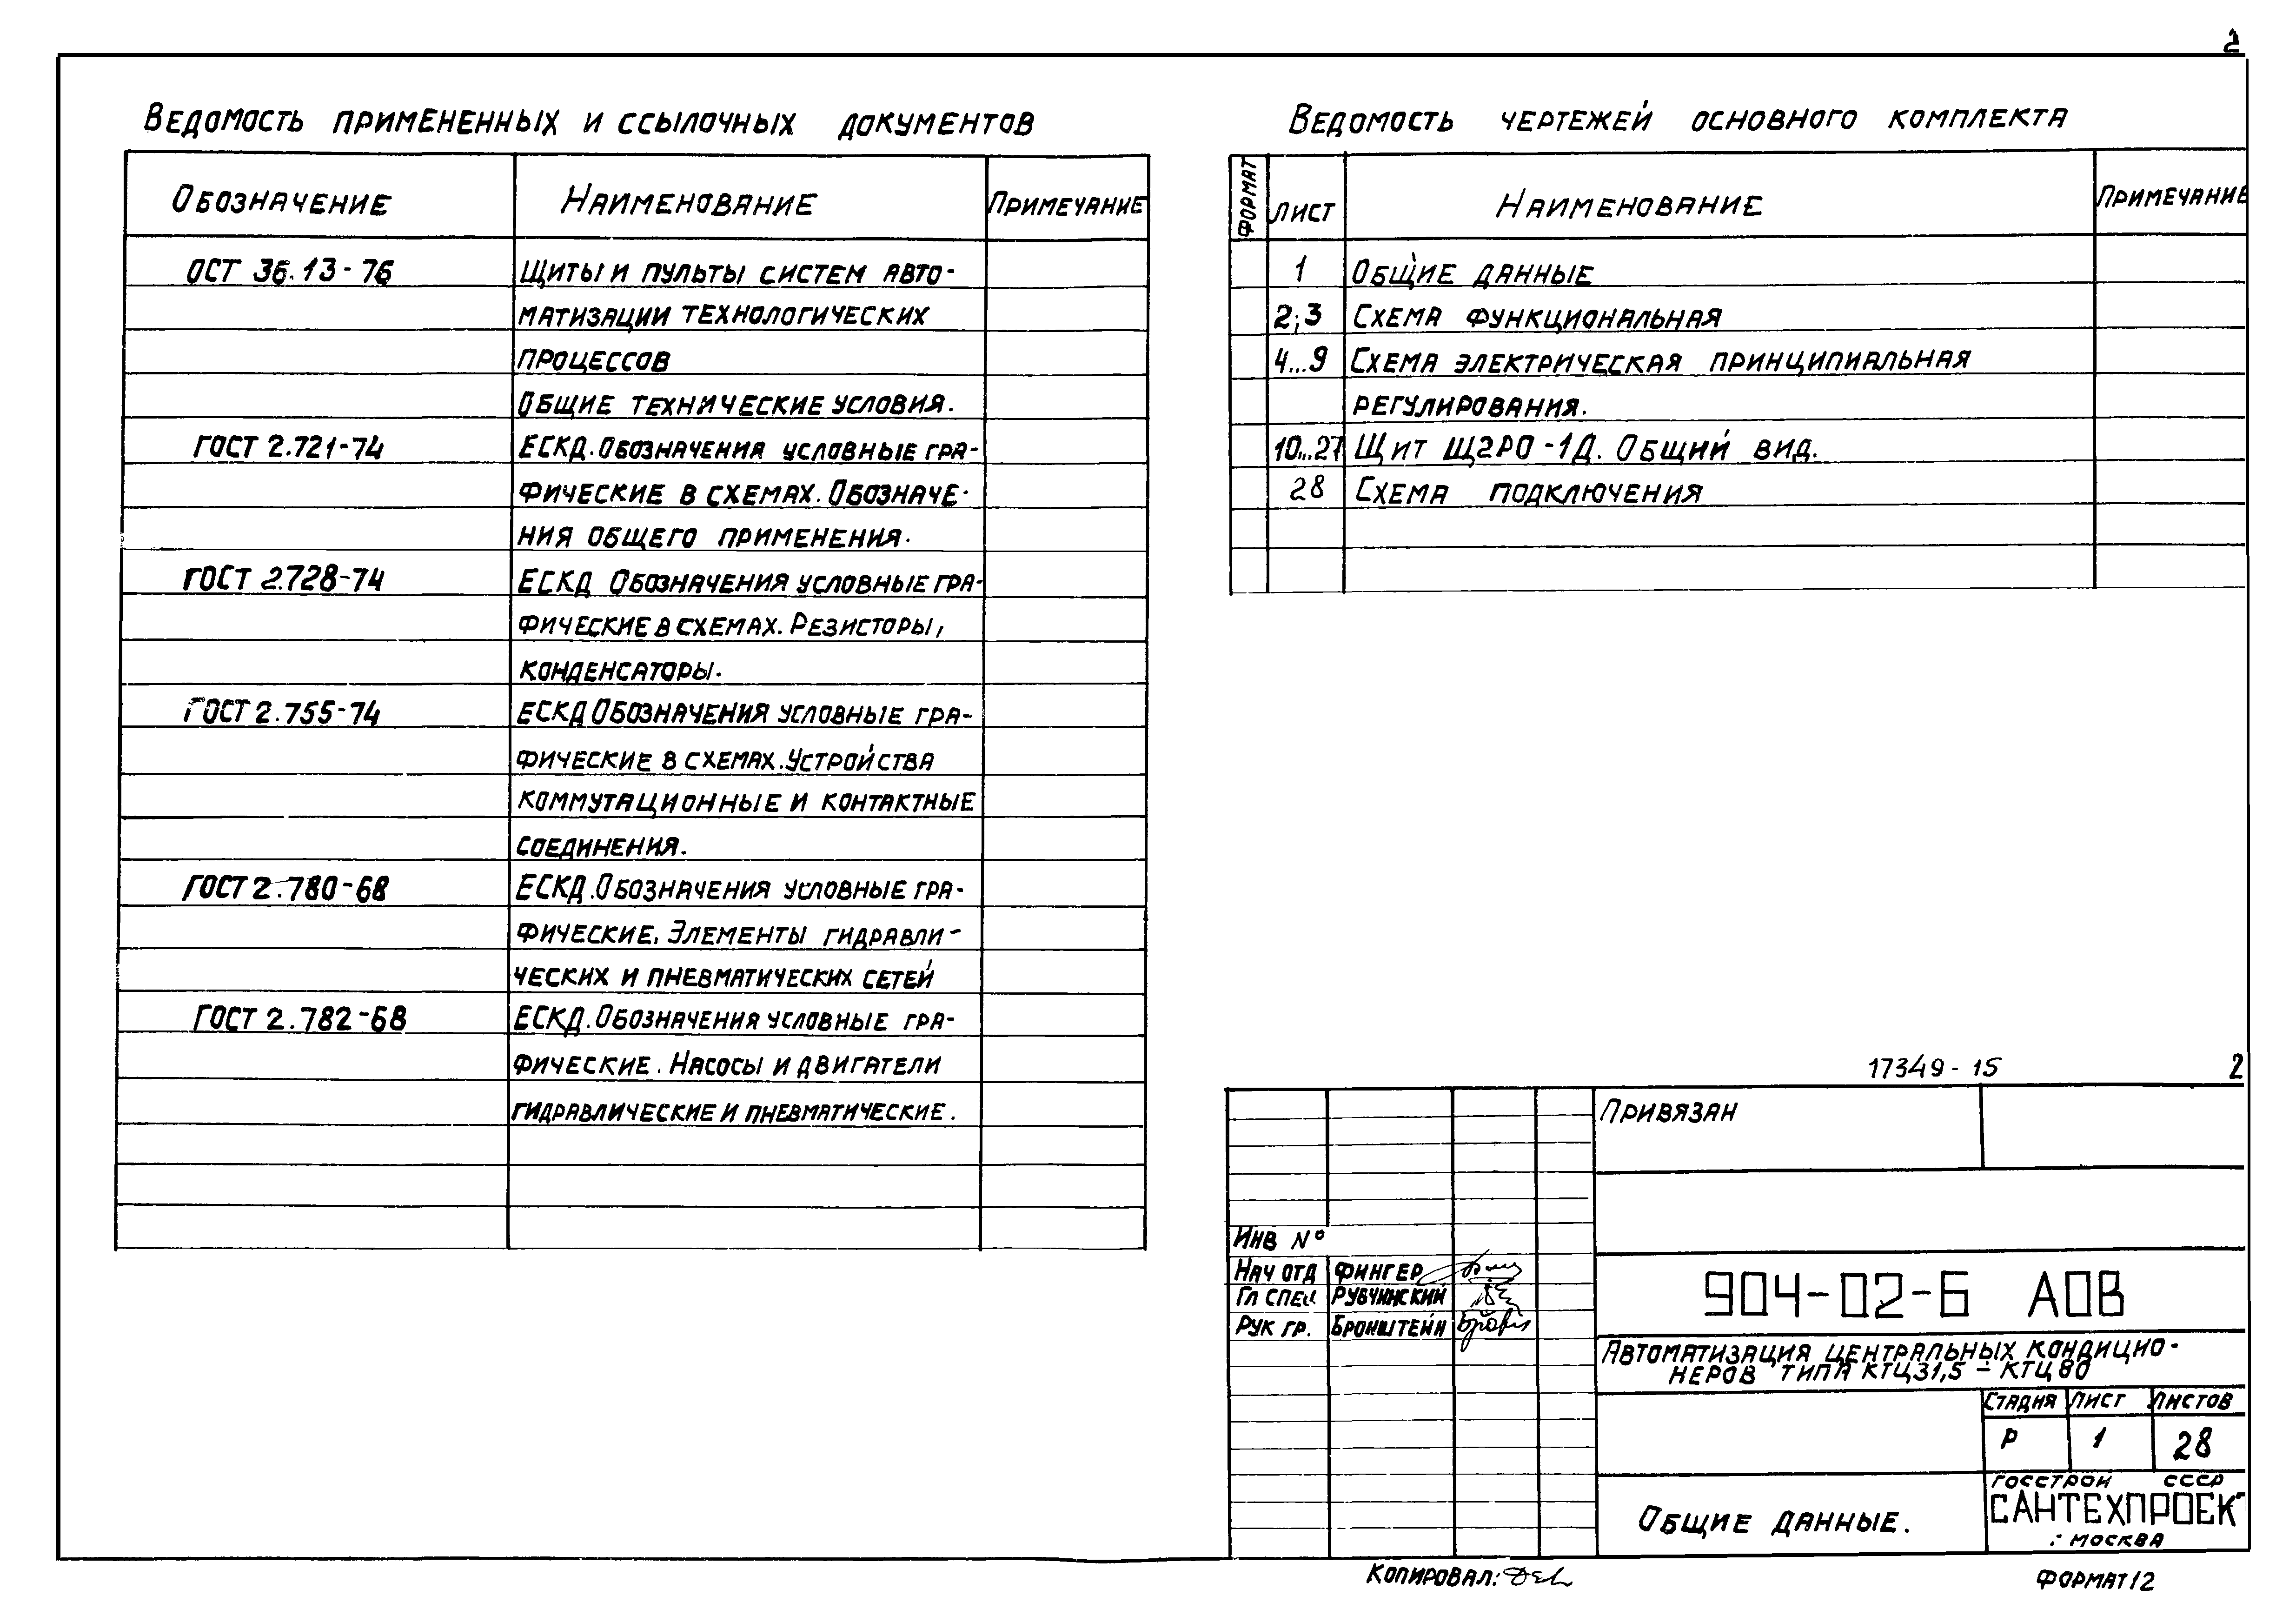 2
Ведомость примененных и ссылочных документов
Обозначение Наименование Примечание
ОСТ 36.13-76 Щиты и пульты систем авто-
матизации технологических
процессов
Общие технические условия.
ГОСТ 2.721-74 ЕСКД. Обозначения условные гра-
фические в схемах. Обозначе-
ния общего применения.
ГОСТ 2.728-74 ЕСКД Обозначения условные гра-
фические в схемах. Резисторы,
конденсаторы.
ГОСТ 2.755-74 ЕСКД Обозначения условные гра-
фические в схемах. Устройства
коммутационные и контактные
соединения.
ГОСТ 2.780-68 ЕСКД. Обозначения условные гра-
фические. Элементы гидравли-
ческих и пневматических сетей
ГОСТ 2.782-68 ЕСКД. Обозначения условные гра-
фические. Насосы и двигатели
гидравлические и пневматические.
Ведомость чертежей основного комплекта
Формат Лист Наименование Примечание
1 Общие данные
2;3 Схема функциональная
4...9 Схема электрическая принципиальная
регулирования.
10...27 Щит Щ2РО-1Д. Общий вид.
28 Схема подключения
17349-15 2
Привязан
Инв №
Нач отд Фингер
Гл спец Рубчинский
Рук гр. Бронштейн
904-02-6 АОВ
Автоматизация центральных кондицио-
неров типа КТЦ31,5 - КТЦ80
Стадия Лист Листов
Р 1 28
Общие данные.
Госстрой СССР
САНТЕХПРОЕКТ
г Москва
Копировал:
Формат 12